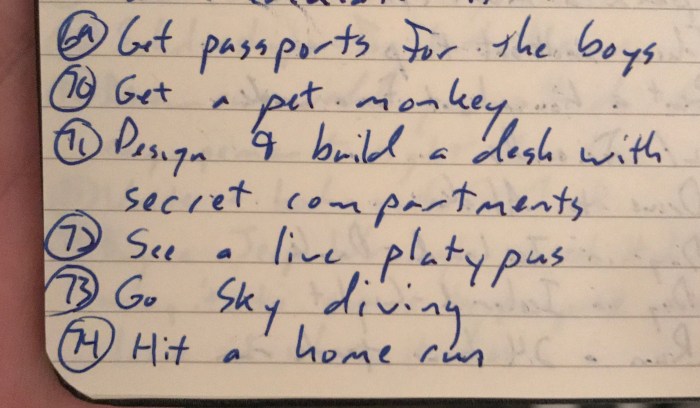 69 Get passports for the boys
70 Get a pet monkey
71 Design & build a desk with
secret compartments
72 See a live platypus
73 Go sky diving
74 Hit a home run